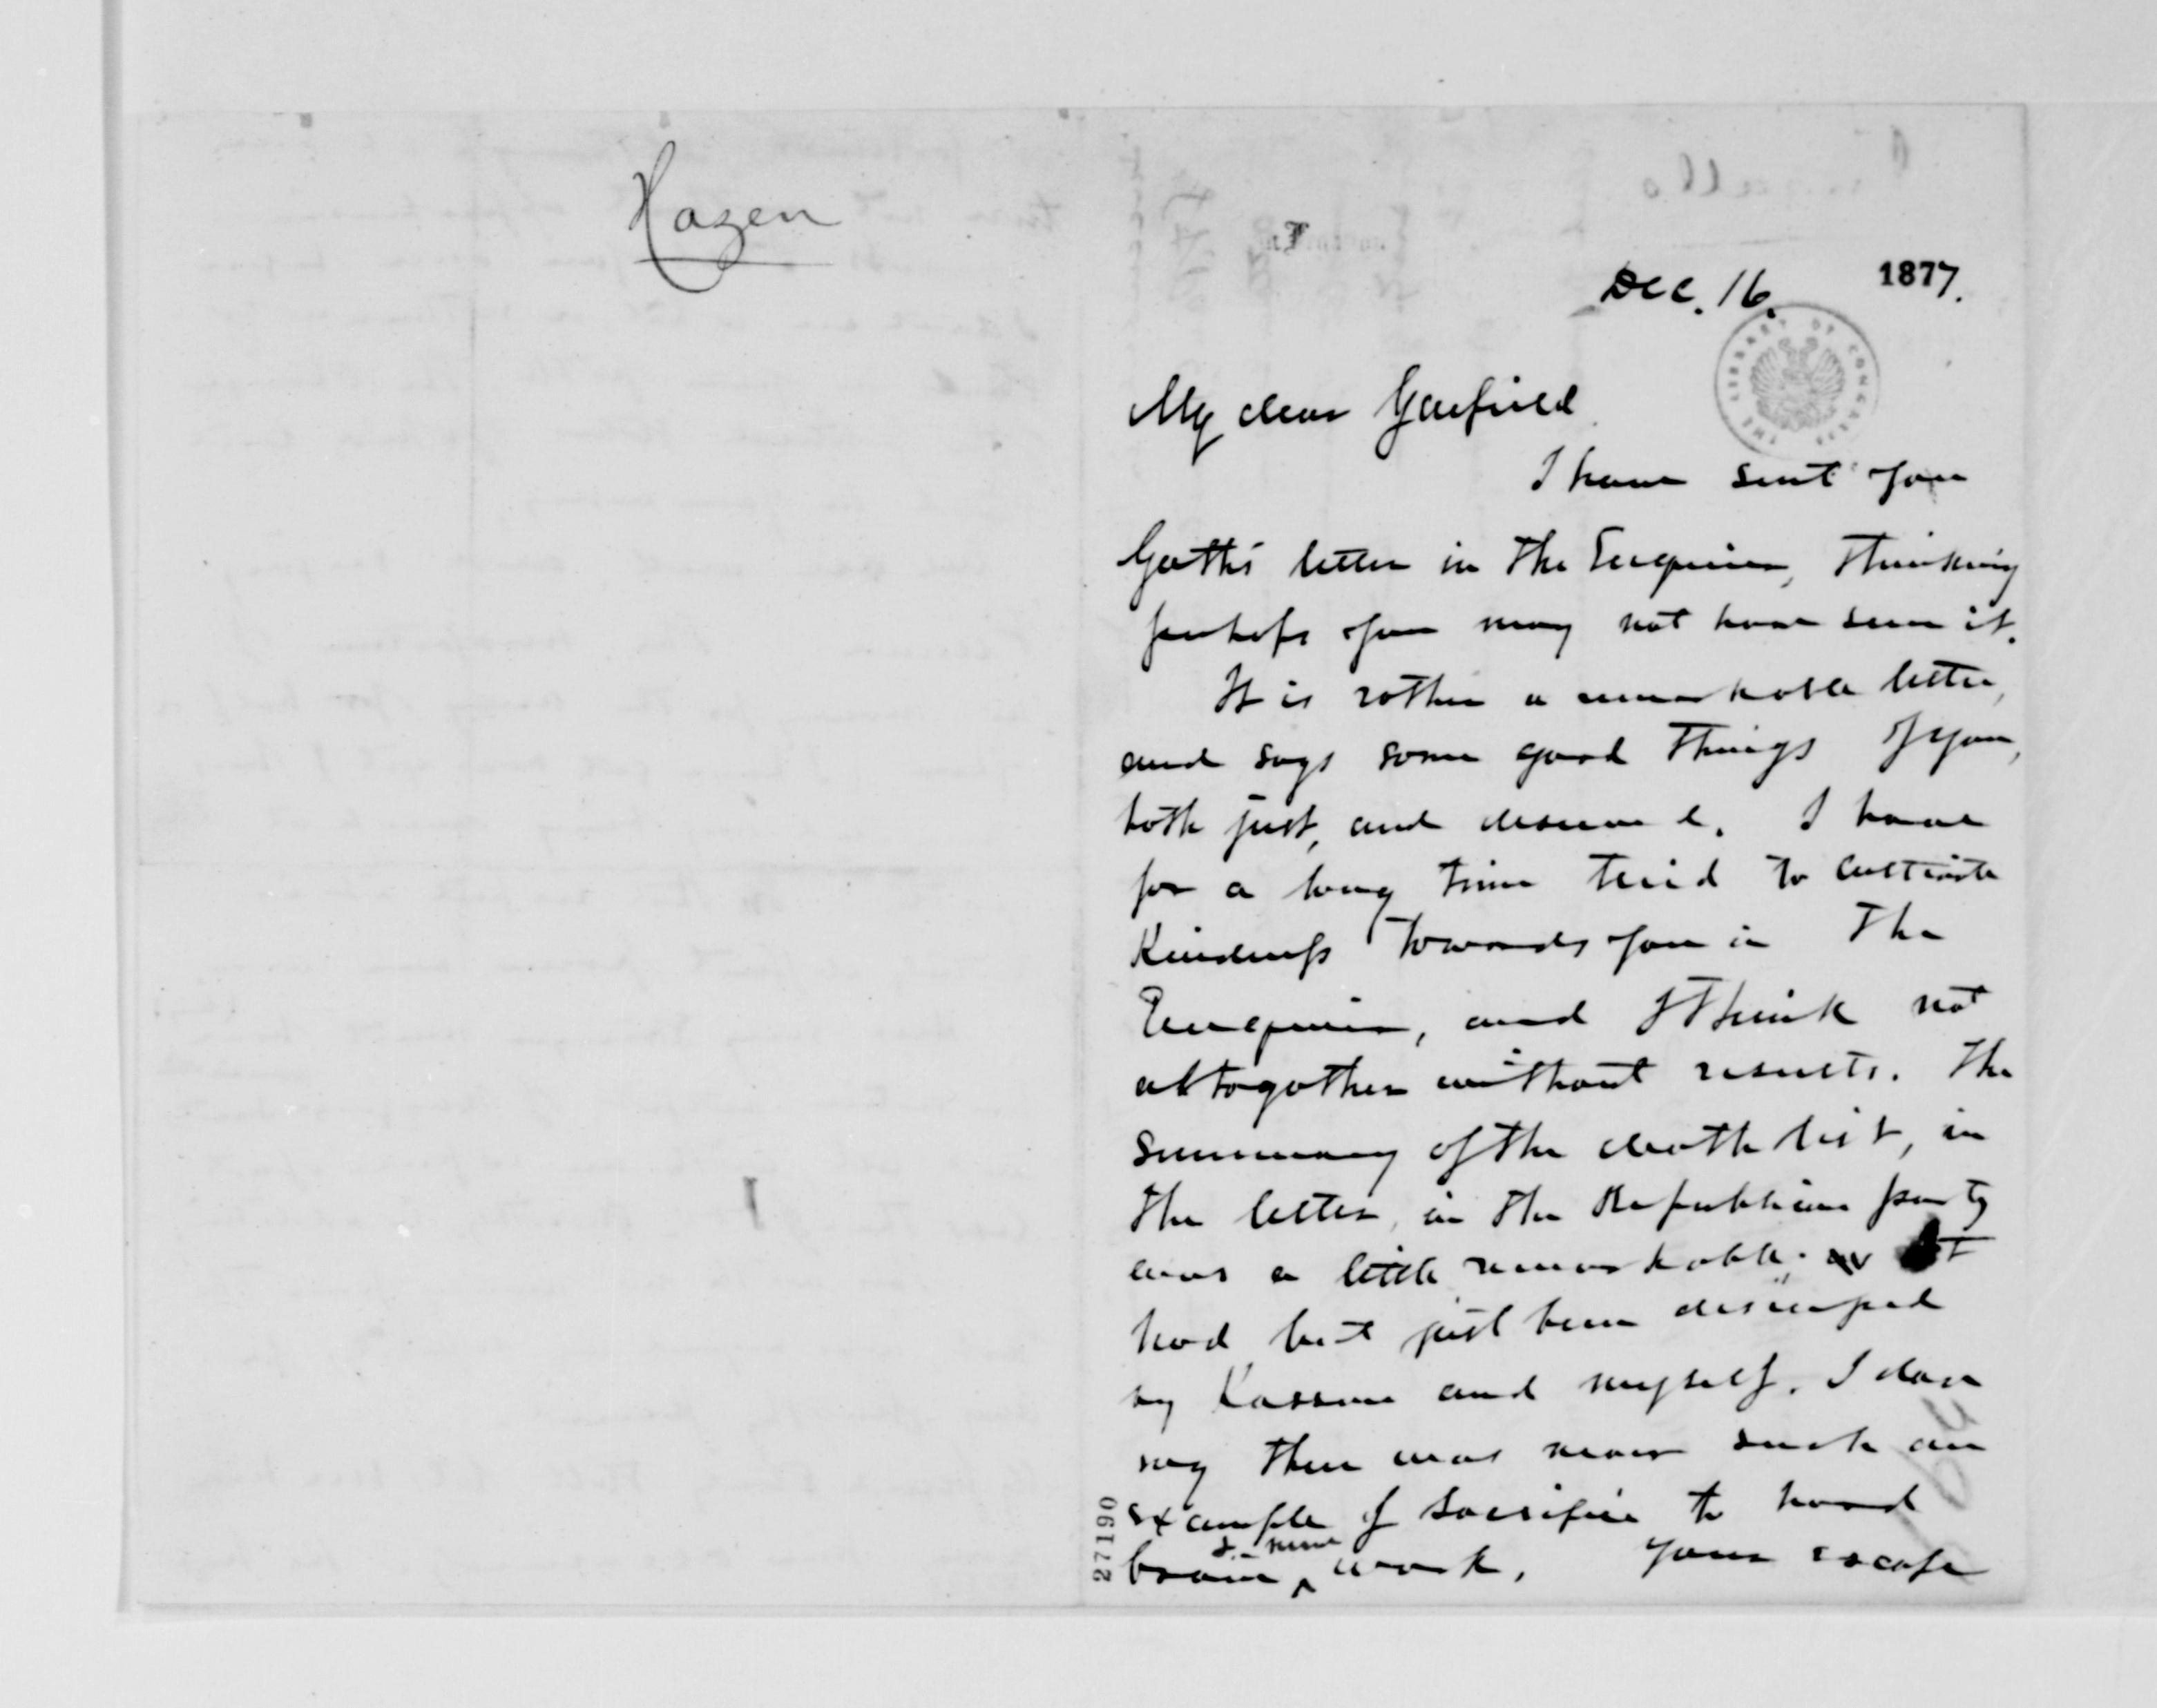 Hazen
Dec. 16, 1877.
THE LIBRARY OF CONGRESS
My dear Garfield
I have sent you
Gath's letter in the Enquirer, thinking
perhaps you may not have seen it.
It is rather a remarkable letter,
and says some good things of you,
both just, and deserved. I have
for a long time tried to cultivate
Kindness towards you in the
Enquirer, and I think not
altogether without results. The
summary of the death list, in
the letter, in the Republican party
was a little remarkable. It
had but just been discussed
by Kasson and myself. I dare
say there was never such an
example of sacrifice to hard
brain & nerve work. Your escape
27190